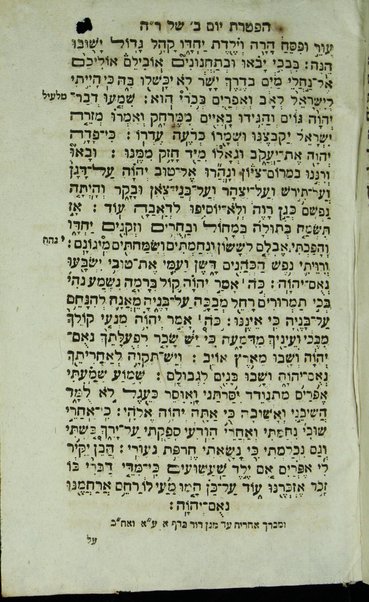 הפטרת יום ב׳ של ר״ה
עור ופסח הרה וילדת יחדו קהל גדול ישובו
הנה: בבכי יבאו ובתחנונים אובילם אוליכם
אל־נחלי מים בדרך ישר לא יכשלו בה כי־הייתי
לישראל לאב ואפרים בכרי הוא: שמעו דבר־
מלעיל
יהוה גוים והגידו באיים ממרחק ואמרו מזרה
ישראל יקבצנו ושמרו כרעה עדרו: כי־פדה
יהוה את־יעקב וגאלו מיד חזק ממנו: ובאו
ורננו במרום־ציון ונהרו אל־טוב יהוה על־דגן
ועל־תירש ועל־יצהר ועל־בני־צאן ובקר והיתה
נפשם כגן רוה ולא־יוסיפו לדאבה עוד: אז
תשמח בתולה במחול ובחרים וזקנים יחדו
והפכתי אבלם לששון ונחמתים ושמחתים מיגונם:
ורויתי נפש הכהנים דשן ועמי את־טובי ישבעו
נאם־יהוה: כה׀ אמר יהוה קול ברמה נשמע נהי
בכי תמרורים רחל מבכה על־בניה מאנה להנחם
על־בניה כי איננו: כה׀ אמר יהוה מנעי קולך
מבכי ועיניך מדמעה כי יש שכר לפעלתך נאם־
יהוה ושבו מארץ אויב: ויש־תקוה לאחריתך
נאם־יהוה ושבו בנים לגבולם: שמוע שמעתי
אפרים מתנודד יסרתני ואוסר כעגל לא למד
השיבני ואשובה כי אתה יהוה אלהי: כי־אחרי
שובי נחמתי ואחרי הודעי ספקתי על־ירך בשתי
וגם נכלמתי כי נשאתי חרפת נעורי: הבן יקיר
לי אפרים אם ילד שעשועים כי־מדי דברי בו
זכר אזכרנו עוד על־כן המו מעי לו רחם ארחמנו
נאם־יהוה:
ומברך אחריה עד מגן דוד בדף א׳ ע״א ואח״כ
על